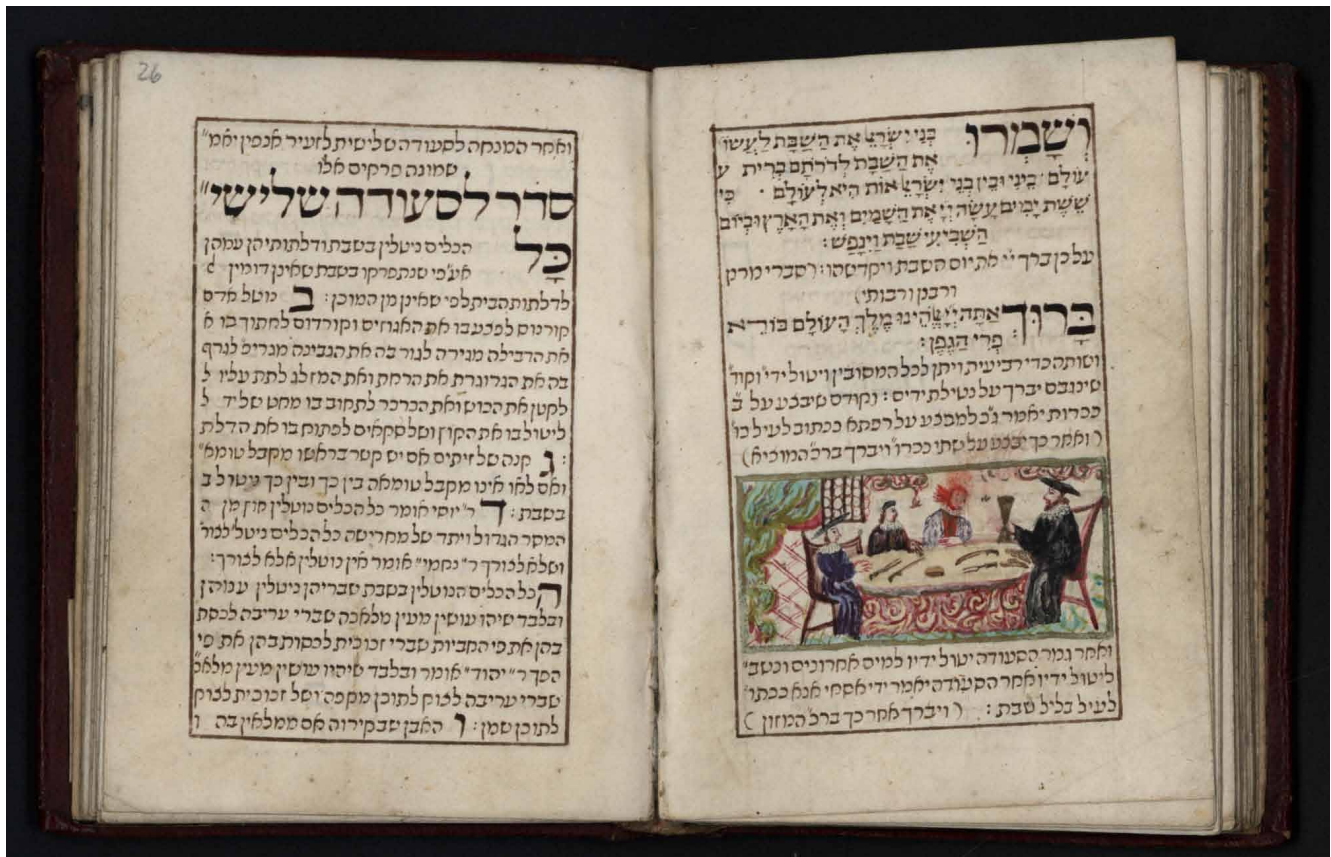 וְשָׁמְרוּ בְּנֵי יִשְׂרָאֵל אֶת הַשַּׁבָּת לַעֲשׂוֹ
אֶת הַשַּׁבָּת לְדֹרֹתָם בְּרִית ע
עוֹלָם בֵּינִי וּבֵין בְּנֵי יִשְׂרָאֵל אוֹת הִיא לְעוֹלָם כִּי
שֵׁשֶׁת יָמִים עָשָׂה יְיָ אֶת הַשָּׁמַיִם וְאֶת הָאָרֶץ וּבַיּוֹם
הַשְּׁבִיעִי שָׁבַת וַיִּנָּפַשׁ:
על כן ברך יי את יום השבת ויקדשהו: (סברי מרנן
ורבנן ורבותי)
בָּרוּךְ אַתָּה יְיָ אֱלֹהֵינוּ מֶלֶךְ הָעוֹלָם בּוֹרֵא
פְּרִי הַגֶּפֶן:
ושותה כדי רביעית ויתן לכל המסובין ויטול ידי' וקוד'
שינגבם יברך על נטילת ידים: וקודם שיבצע על ב'
ככרות יאמר ג"כ למבצע על רפתא ככתוב לעיל כו'
(ואחר כך יבצע על שתי ככרו' ויברך ברכ' המוציא)
ואחר גמר הסעודה יטול ידיו למים אחרונים וכשב'
ליטול ידיו אחר הסעודה יאמר ידי אסחי אנא ככתו'
לעיל בליל שבת: (ויברך אחר כך ברכ' המזון)
26
ואחר המנחה לסעודה שלישית לזעיר אנפין יאמ'
שמונה פרקים אלו
סדר לסעודה שלישי'
כָּל הכלים ניטלין בשבת ודלתותיהן עמהן
אע"פי שנתפרקו בשבת שאינן דומין
לדלתות הבית לפי שאינן מן המוכן: ב נוטל אדם
קורנוס לפצע בו את האגוזים וקורדום לחתוך בו א
את הדבילה מגירה לגור בה את הגבינה מגריפ לגרף
בה את הגרוגרת את הרחת ואת המזלג לתת עליו ל
לקטן את הכוש ואת הכרכר לתחוב בו מחט של יד ל
ליטול בו את הקוץ ושל סקאים לפתוח בו את הדלת
: ג קנה של זיתים אם יש קשר בראשו מקבל טומא'
ואם לאו אינו מקבל טומאה בין כך ובין כך ניטול ב
בשבת: ד ר' יוסי אומר כל הכלים נוטלין חוץ מן ה
המסר הגדול ויתד של מחרישה כל הכלים ניטל' לצור'
ושלא לצורך ר' נחמי' אומר אין נוטלין אלא לצורך:
ה כל הכלים הנוטלין בשבת שבריהן ניטלין עמהן
ובלבד שיהו עושין מעין מלאכה שברי עריבה לכסת
בהן את פי החביות שברי זכוכית לכסות בהן את פי
הפך ר' יהוד' אומר ובלבד שיהיו עושין מעין מלאכ'
שברי עריבה לצוק לתוכן מקפה ושל זכוכית לצוק
לתוכן שמן: ו האבן שבקירויה אם ממלאין בה ו